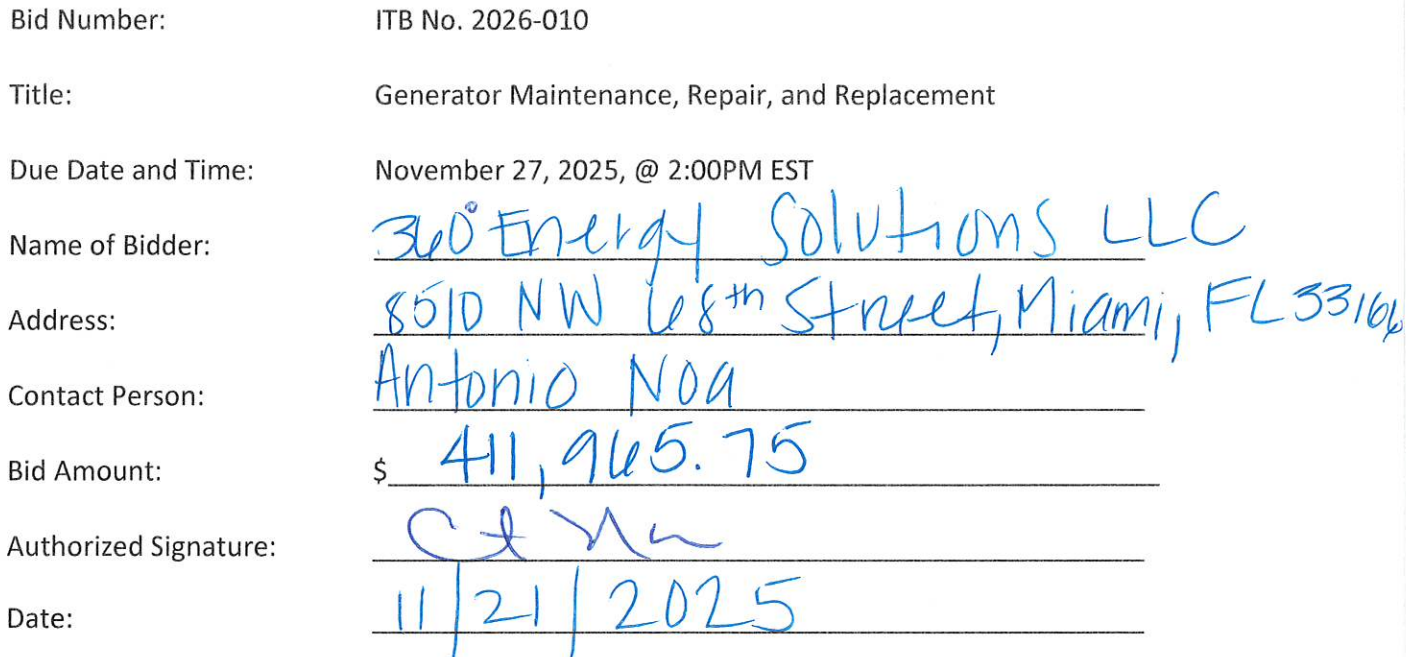 Bid Number: ITB No. 2026-010
Title: Generator Maintenance, Repair, and Replacement
Due Date and Time: November 27, 2025, @ 2:00PM EST
Name of Bidder: 360° Energy Solutions LLC
Address: 8510 NW 68th Street, Miami, FL 33166
Contact Person: Antonio Noa
Bid Amount: $ 411,965.75
Authorized Signature:
Date: 11/21/2025